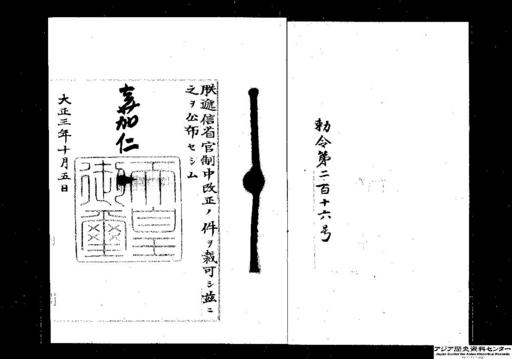 勅令第二百十六号
朕遞信省官制中改正ノ件ヲ裁可シ茲ニ
之ヲ公布セシム
嘉仁
天皇
御璽
大正三年十月五日
アジア歴史資料センター
Japan Center for Asian Historical Records